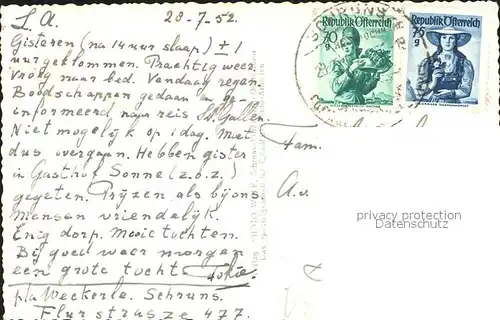 L A.
28-7-52.
Gisteren (na 14 uur slaap) ± 1
uur gekomen. Prachtig weer.
Vroeg naar bed. Vandaag regen.
Boodschappen gedaan en ge-
informeerd naar reis St. Gallen.
Niet mogelijk op 1 dag. Moet
dus overgaan. Hebben gister
in Gasthof Sonne (z.o.z.)
gegeten. Prijzen als bij ons.
Mensen vriendelijk.
Enig dorp. Mooie tochten.
Bij goed weer morgen
een grote tocht
p/a Weckerle. Schruns.
Flurstrasze 477.
Fam.
A. v.
Republik Österreich
70 g
Republik Österreich
75 g
SCHRUNS
privacy protection
Datenschutz